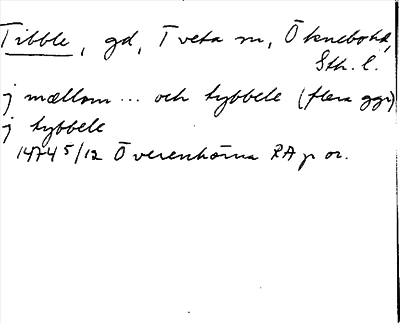 Tibble, gd, Tveta sn, Öknebo hd,
Sth. l.
j mællom ... och tybbele (flera ggr)
j tybbele
1474 5/12 Överenhörna RA p or.